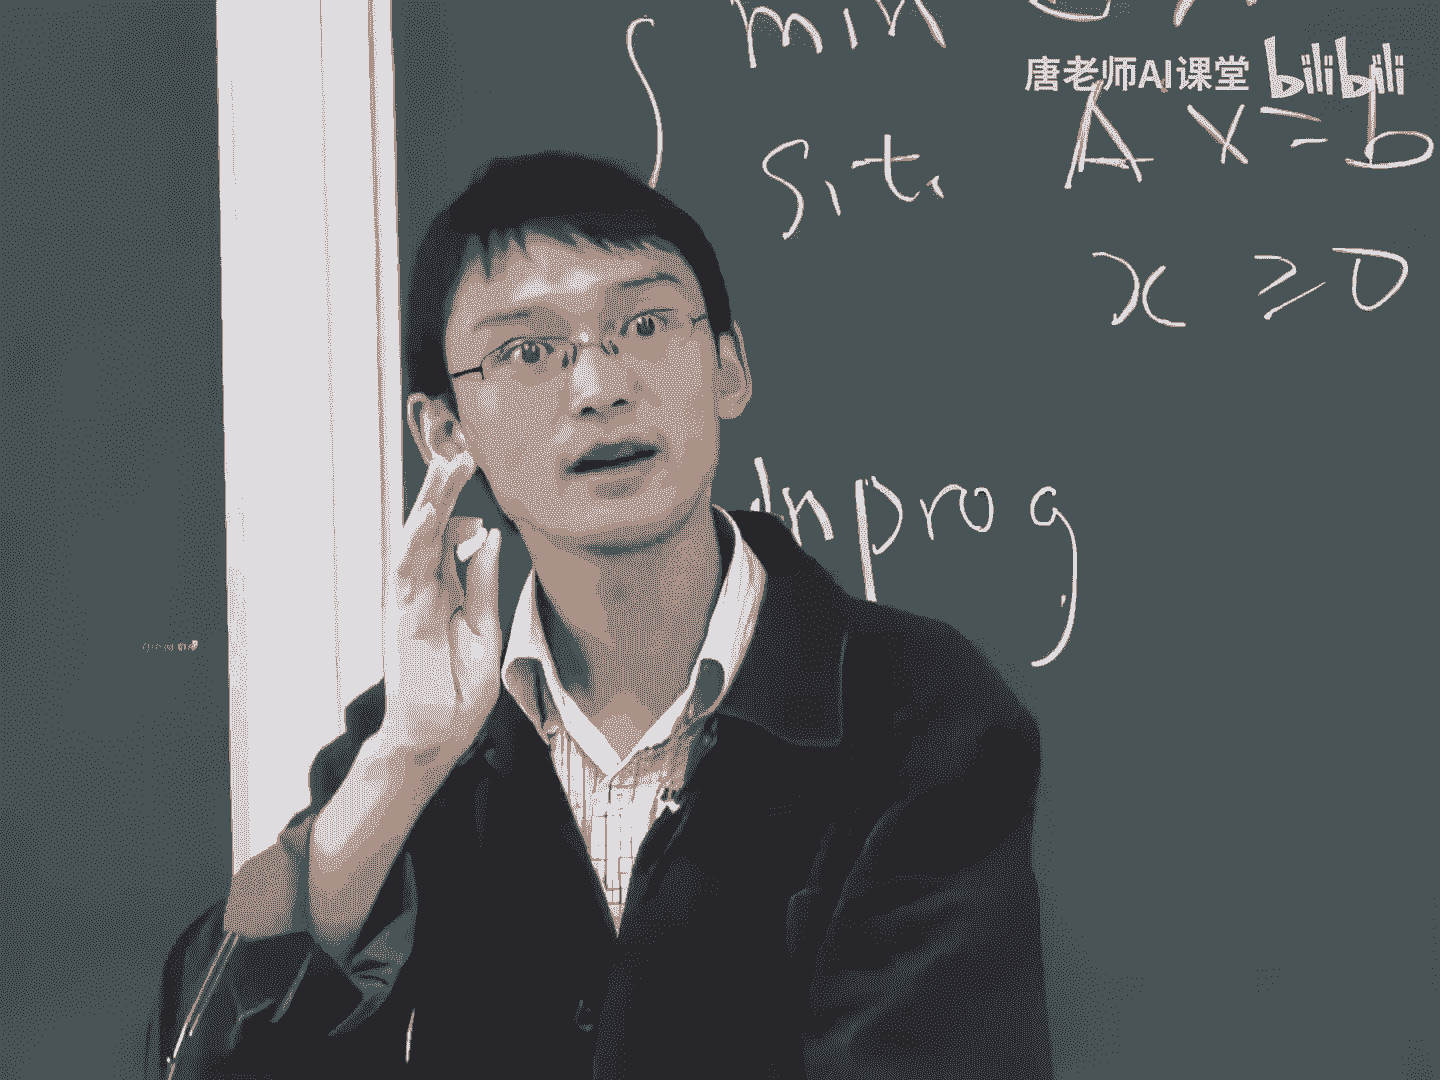 min
唐老师AI课堂 bilibili
s.t. Ax=b
x ≥0
linprog